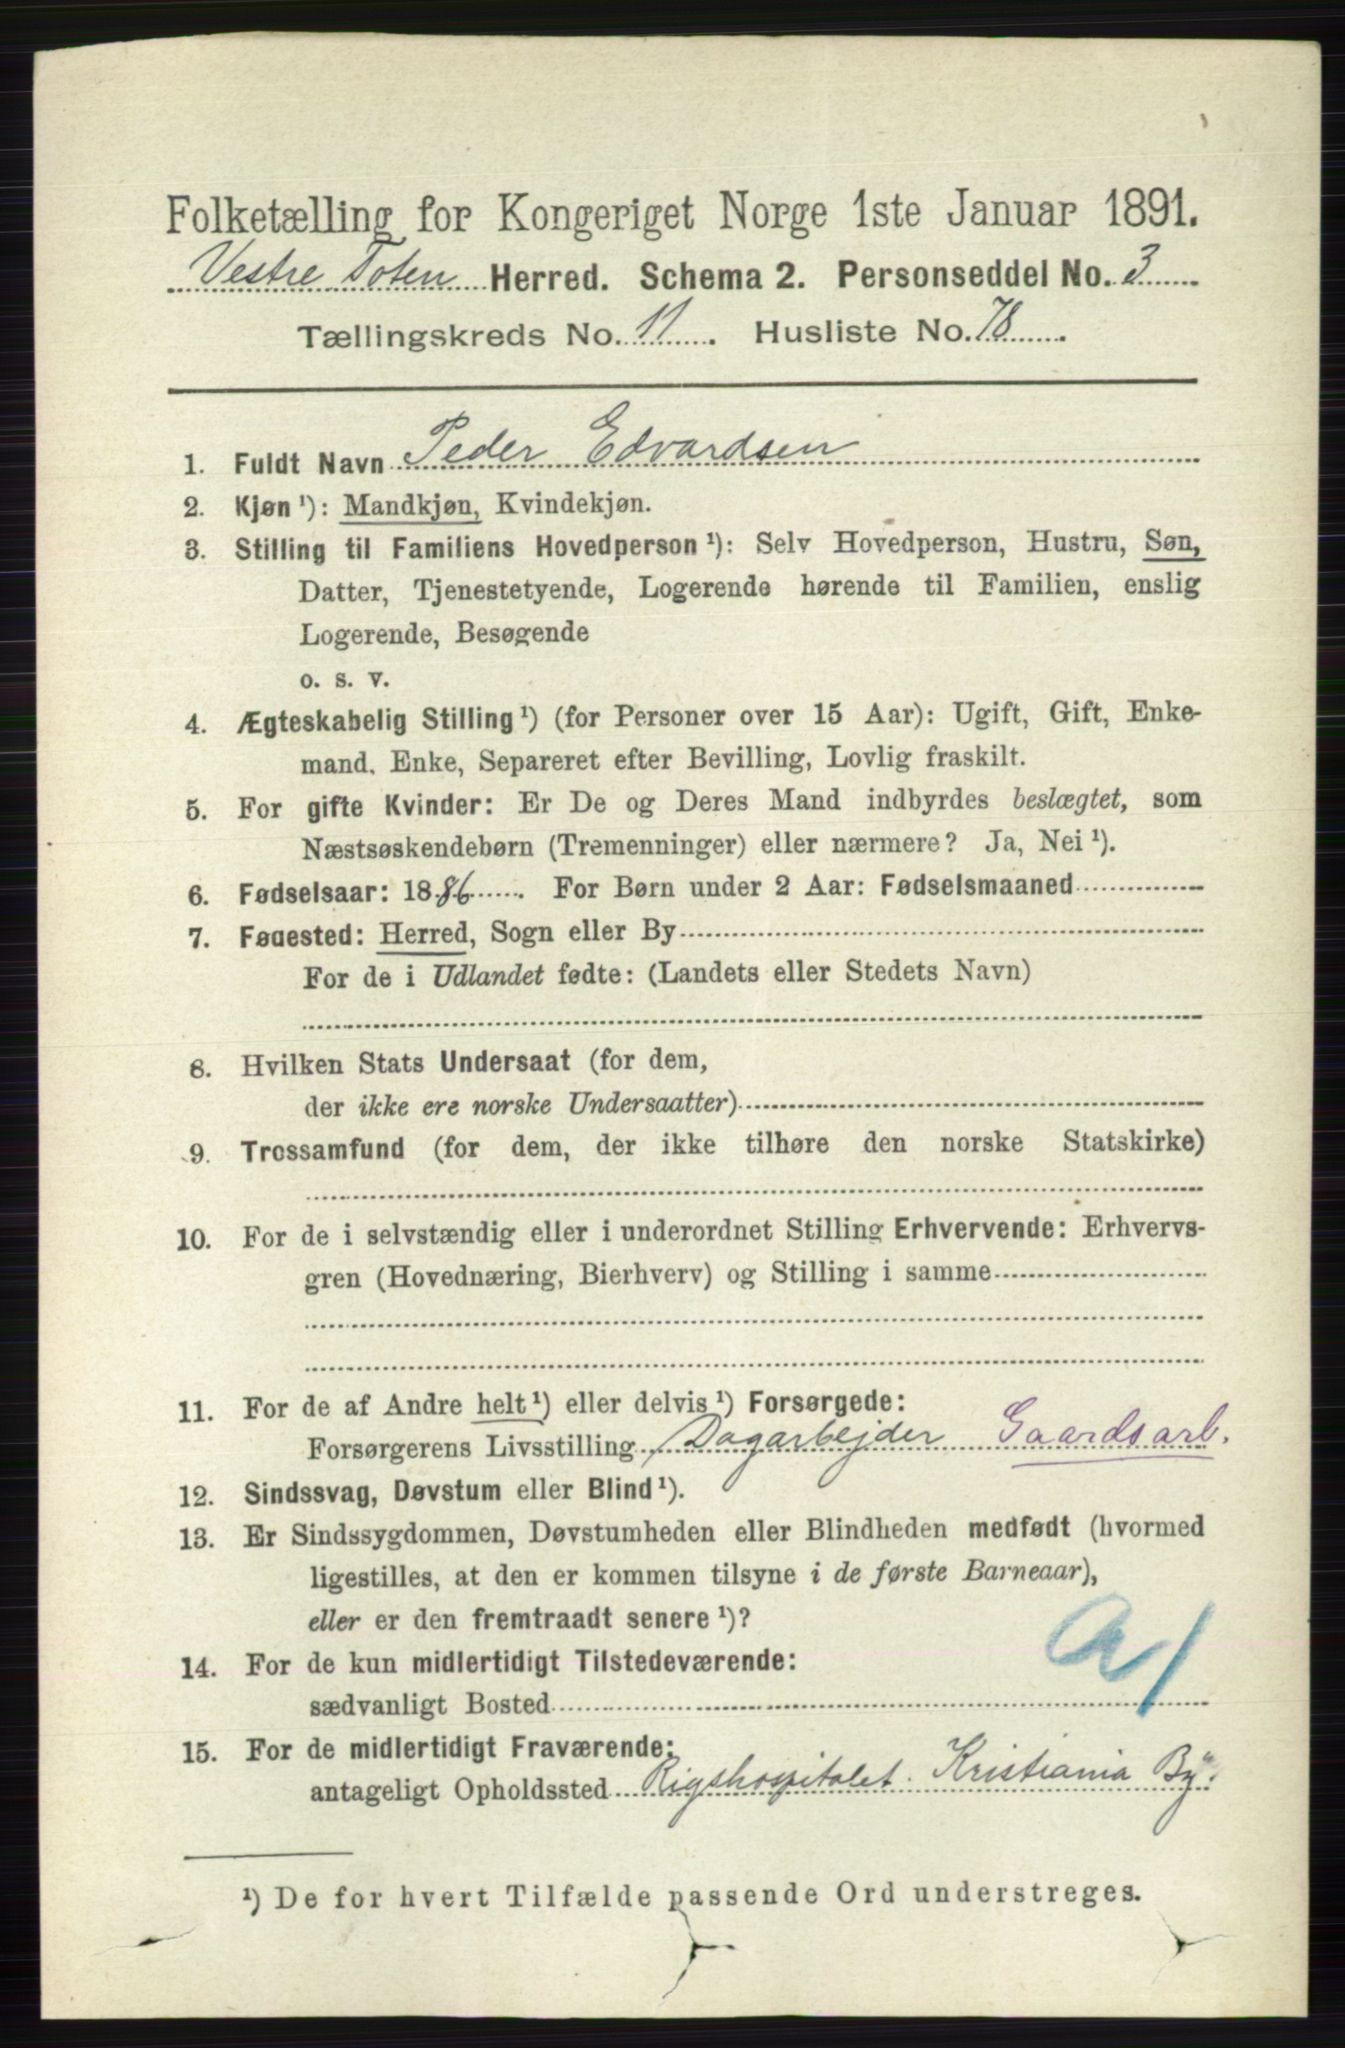 Folketælling for Kongeriget Norge 1ste Januar 1891.
Vestre Toten Herred. Schema 2. Personseddel No. 3
Tællingskreds No. 11. Husliste No. 78.
1. Fuldt Navn Peder Edvardsen
2. Kjøn ¹): Mandkjøn, Kvindekjøn.
3. Stilling til Familiens Hovedperson ¹): Selv Hovedperson, Hustru, Søn,
Datter, Tjenestetyende, Logerende hørende til Familien, enslig
Logerende, Besøgende
o. s. v.
4. Ægteskabelig Stilling ¹) (for Personer over 15 Aar): Ugift, Gift, Enke-
mand, Enke, Separeret efter Bevilling, Lovlig fraskilt.
5. For gifte Kvinder: Er De og Deres Mand indbyrdes beslægtet, som
Næstsøskendebørn (Tremenninger) eller nærmere? Ja, Nei ¹).
6. Fødselsaar: 1886. For Børn under 2 Aar: Fødselsmaaned
7. Fødested: Herred, Sogn eller By
For de i Udlandet fødte: (Landets eller Stedets Navn)
8. Hvilken Stats Undersaat (for dem,
der ikke ere norske Undersaatter)
9. Trossamfund (for dem, der ikke tilhøre den norske Statskirke)
10. For de i selvstændig eller i underordnet Stilling Erhvervende: Erhvervs-
gren (Hovednæring, Bierhverv) og Stilling i samme
11. For de af Andre helt ¹) eller delvis ¹) Forsørgede:
Forsørgerens Livsstilling Dagarbejder Gaardsarb.
12. Sindssvag, Døvstum eller Blind ¹).
13. Er Sindssygdommen, Døvstumheden eller Blindheden medfødt (hvormed
ligestilles, at den er kommen tilsyne i de første Barneaar),
eller er den fremtraadt senere ¹)?
14. For de kun midlertidigt Tilstedeværende:
sædvanligt Bosted
15. For de midlertidigt Fraværende:
antageligt Opholdssted Rigshospitalet. Kristiania By.
¹) De for hvert Tilfælde passende Ord understreges.